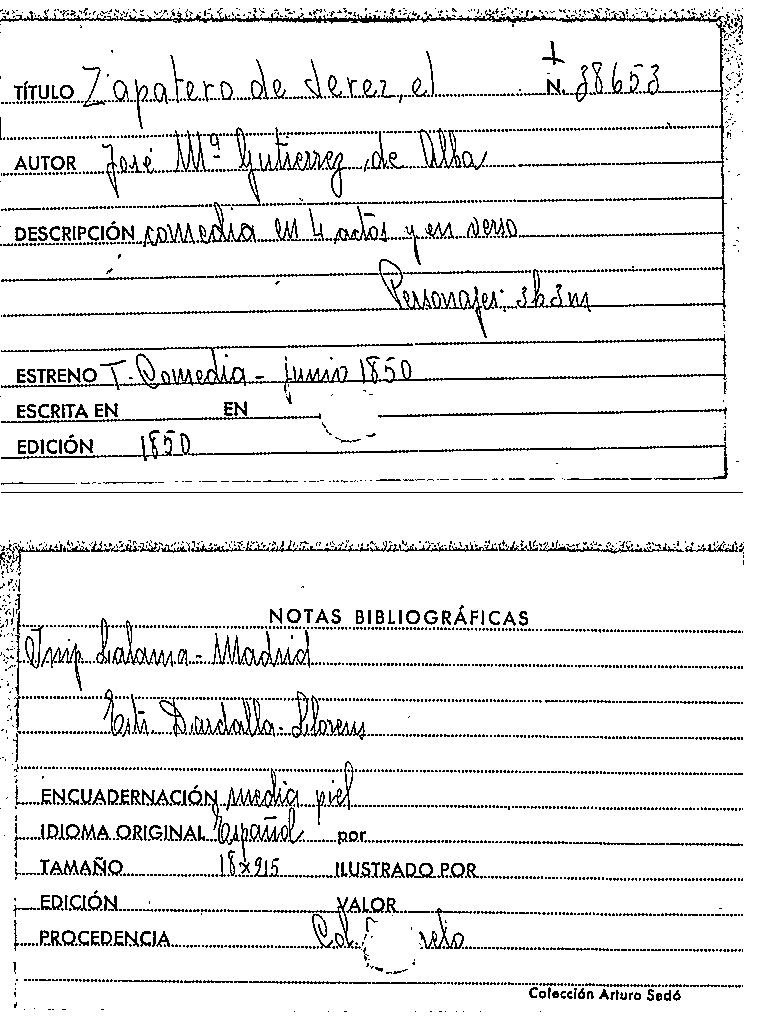 TÍTULO Zapatero de Jerez, el N. 38653
AUTOR José Mª Gutierrez de Alba
DESCRIPCIÓN comedia en 4 actos y en verso
Personajes: 3h3m
ESTRENO T. Comedia - junio 1850
ESCRITA EN EN
EDICIÓN 1850
NOTAS BIBLIOGRÁFICAS
Imp Lalama - Madrid
Estr. Dardalla - Llorens
ENCUADERNACIÓN media piel
IDIOMA ORIGINAL Español por
TAMAÑO 18x
ILUSTRADO POR
EDICIÓN VALOR
PROCEDENCIA Col.
Colección Arturo Sedó